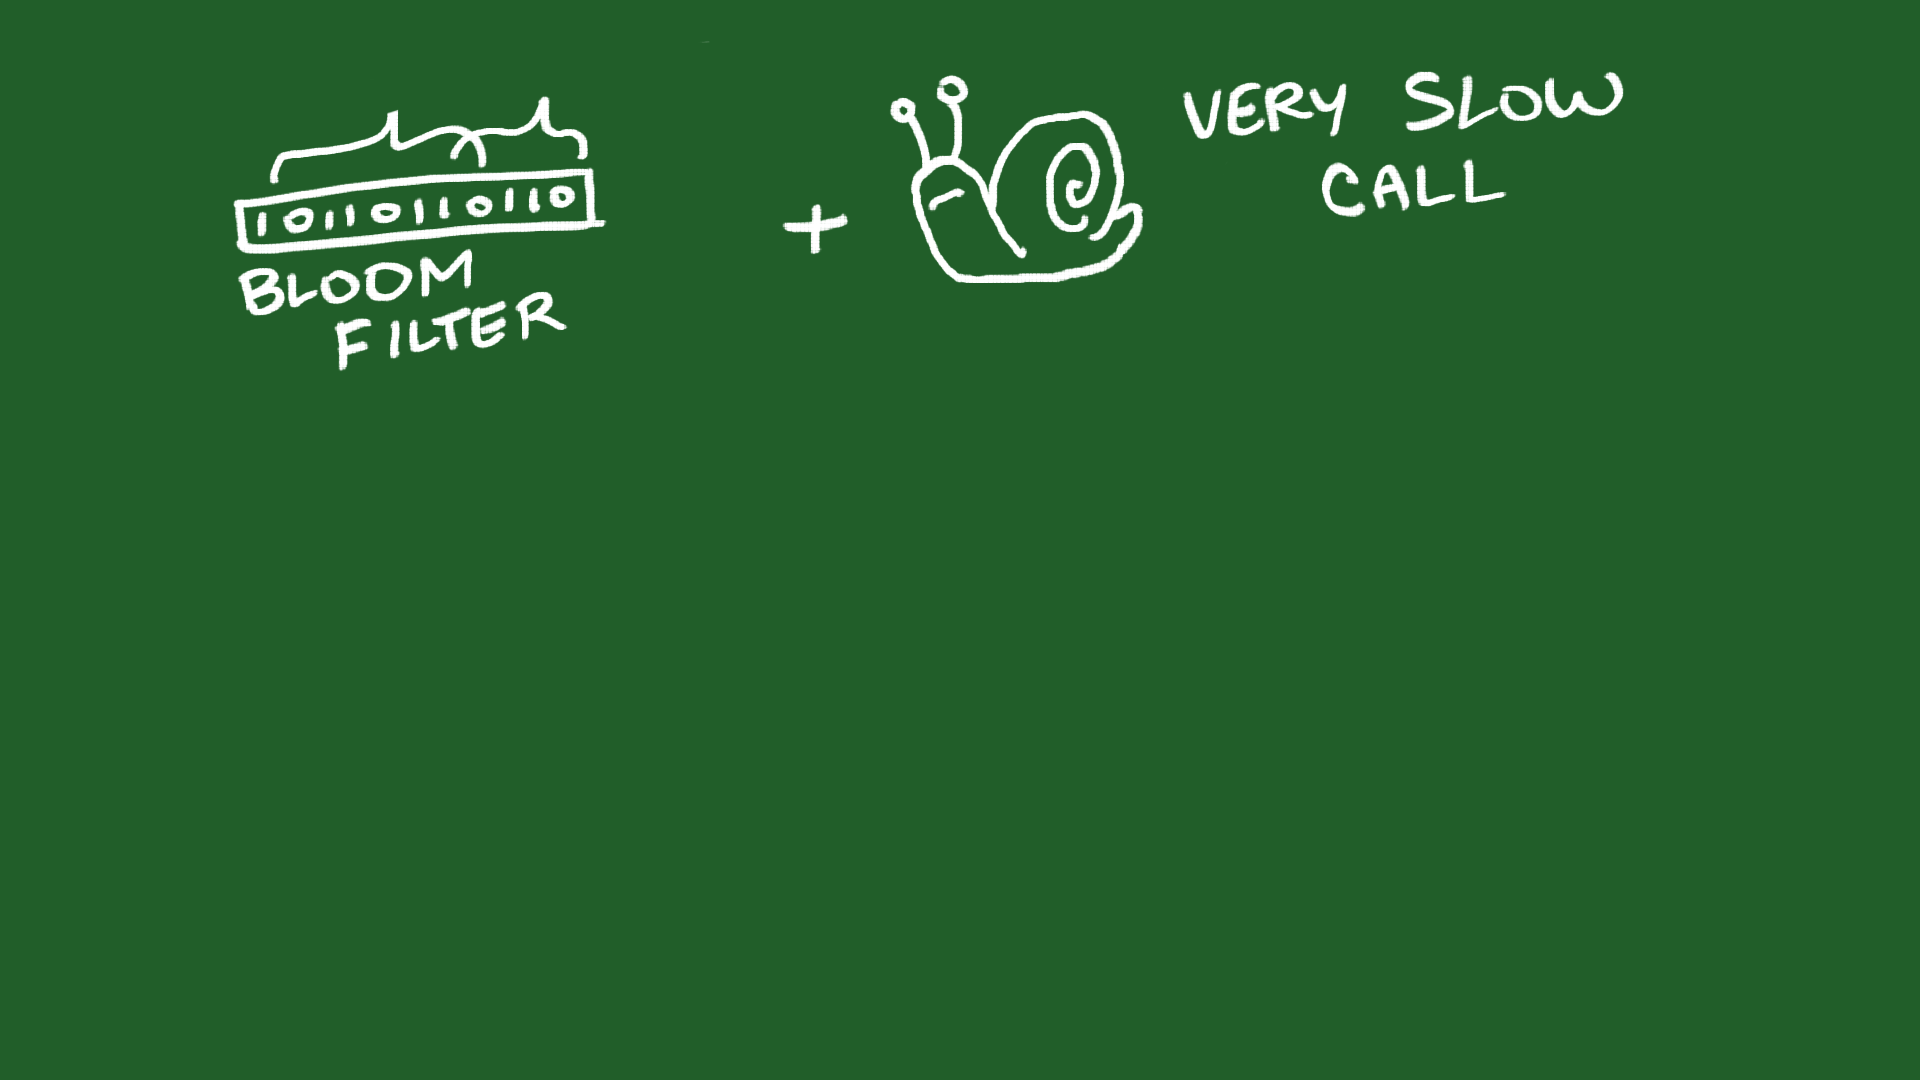 1011011011 0
BLOOM
FILTER
+
VERY SLOW
CALL